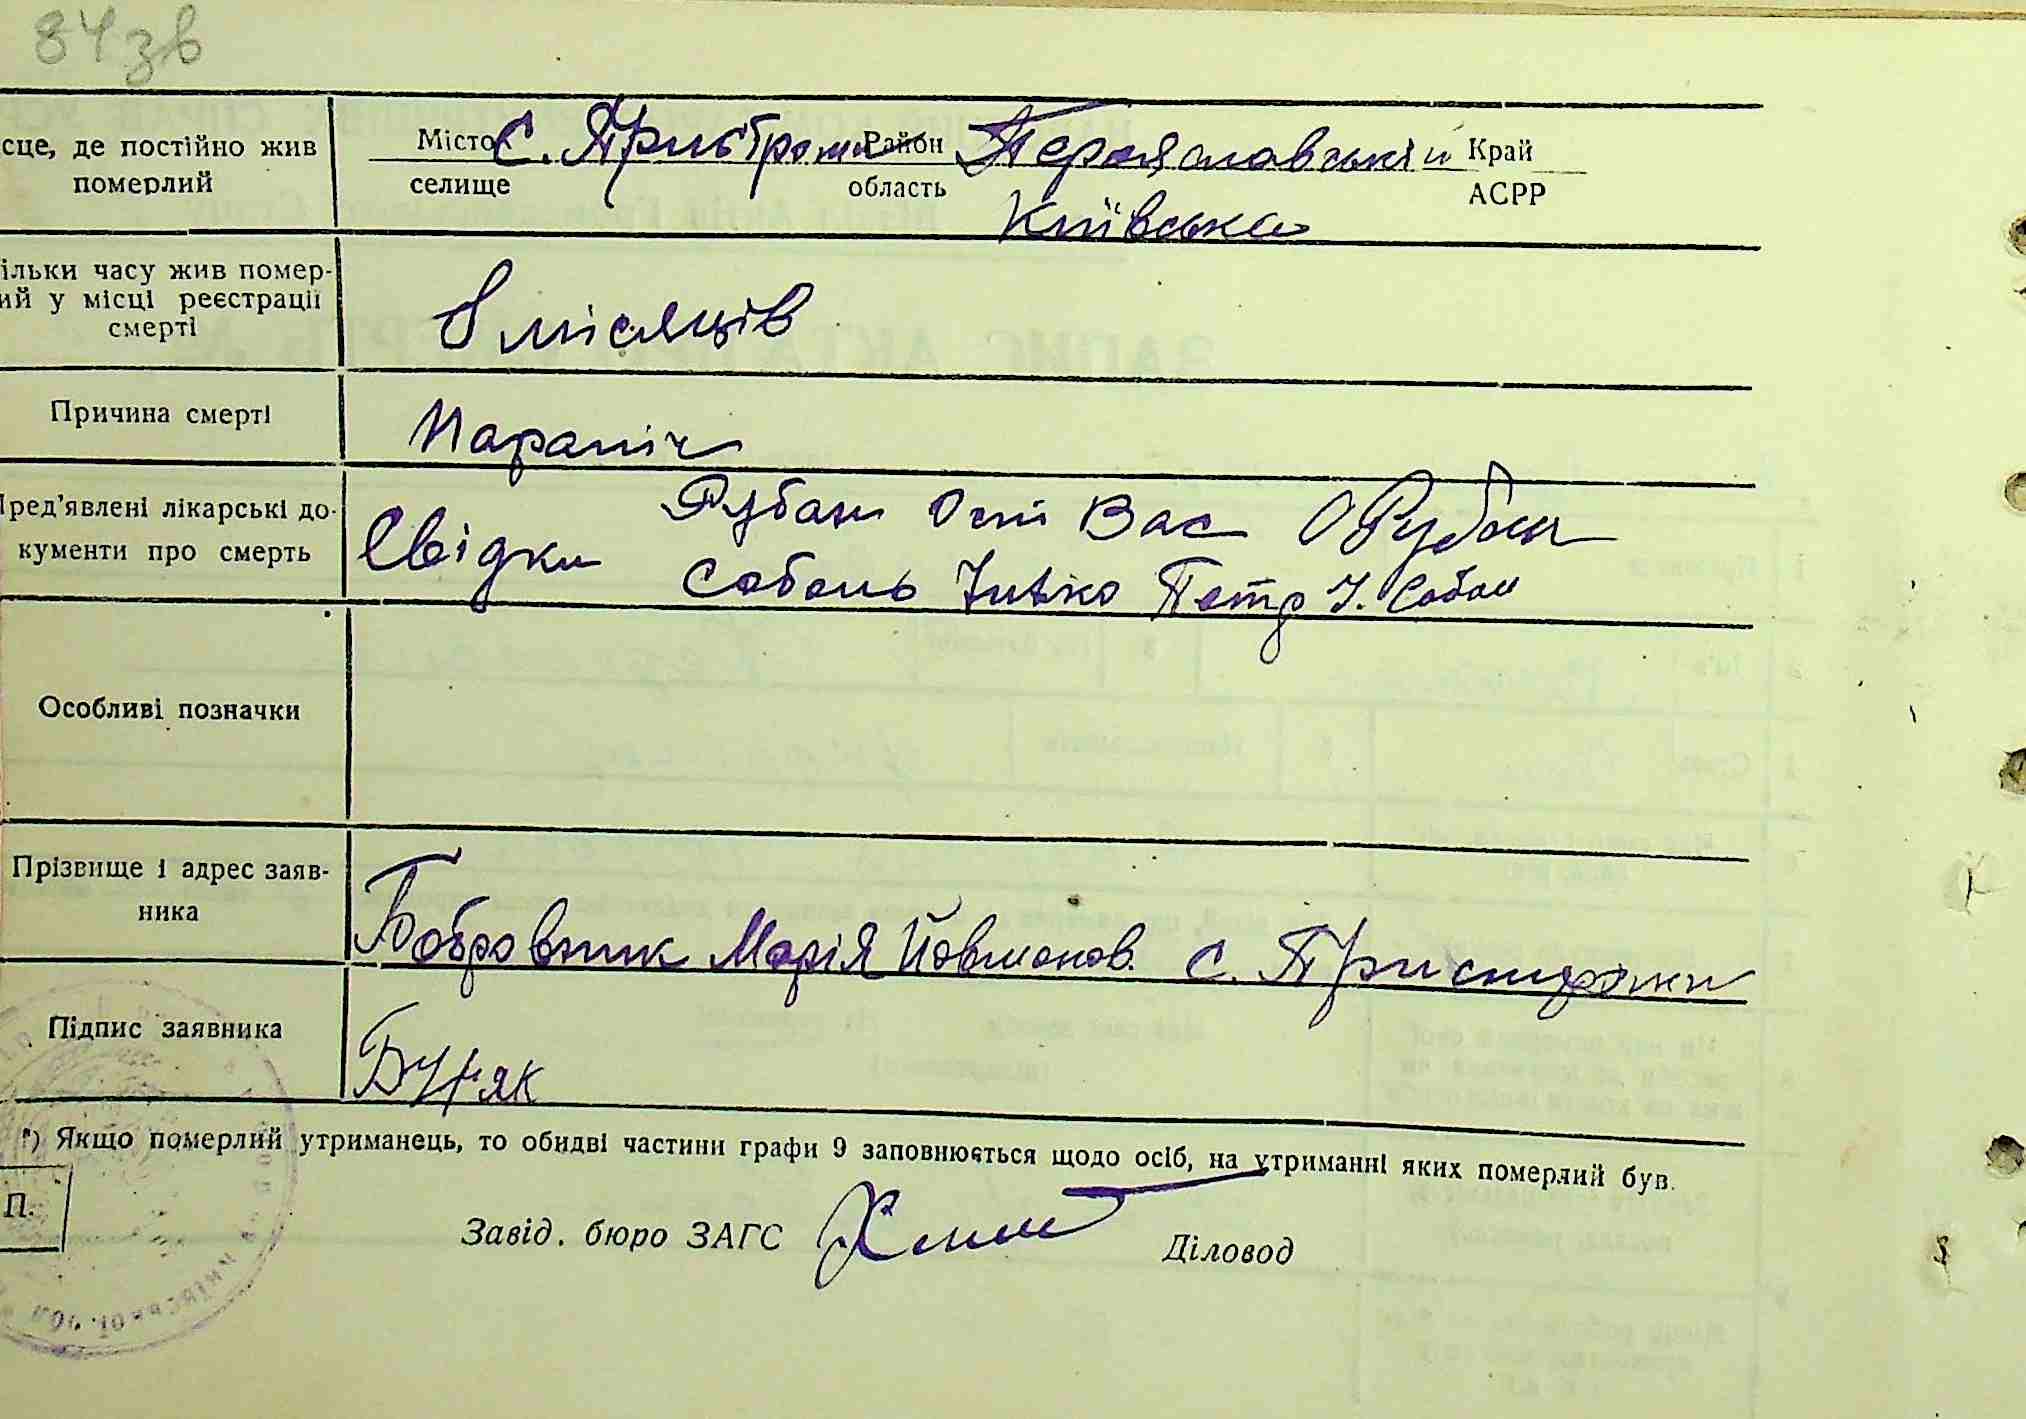 84зв
сце, де постійно жив
померлий
Місто С. Район Переяславський Край
селище область АСРР
Київська
ільки часу жив помер-
ий у місці реєстрації
смерті
8 місяців
Причина смерті
Параліч
Пред'явлені лікарські до-
кументи про смерть
Свідки Рубан Вас О Рубан
Соболь Петр
Особливі позначки
Прізвище і адрес заяв-
ника
Бобровник Марія с.
Підпис заявника
*) Якщо померлий утриманець, то обидві частини графи 9 заповнюється щодо осіб, на утриманні яких померлий був.
П.
Завід. бюро ЗАГС Діловод